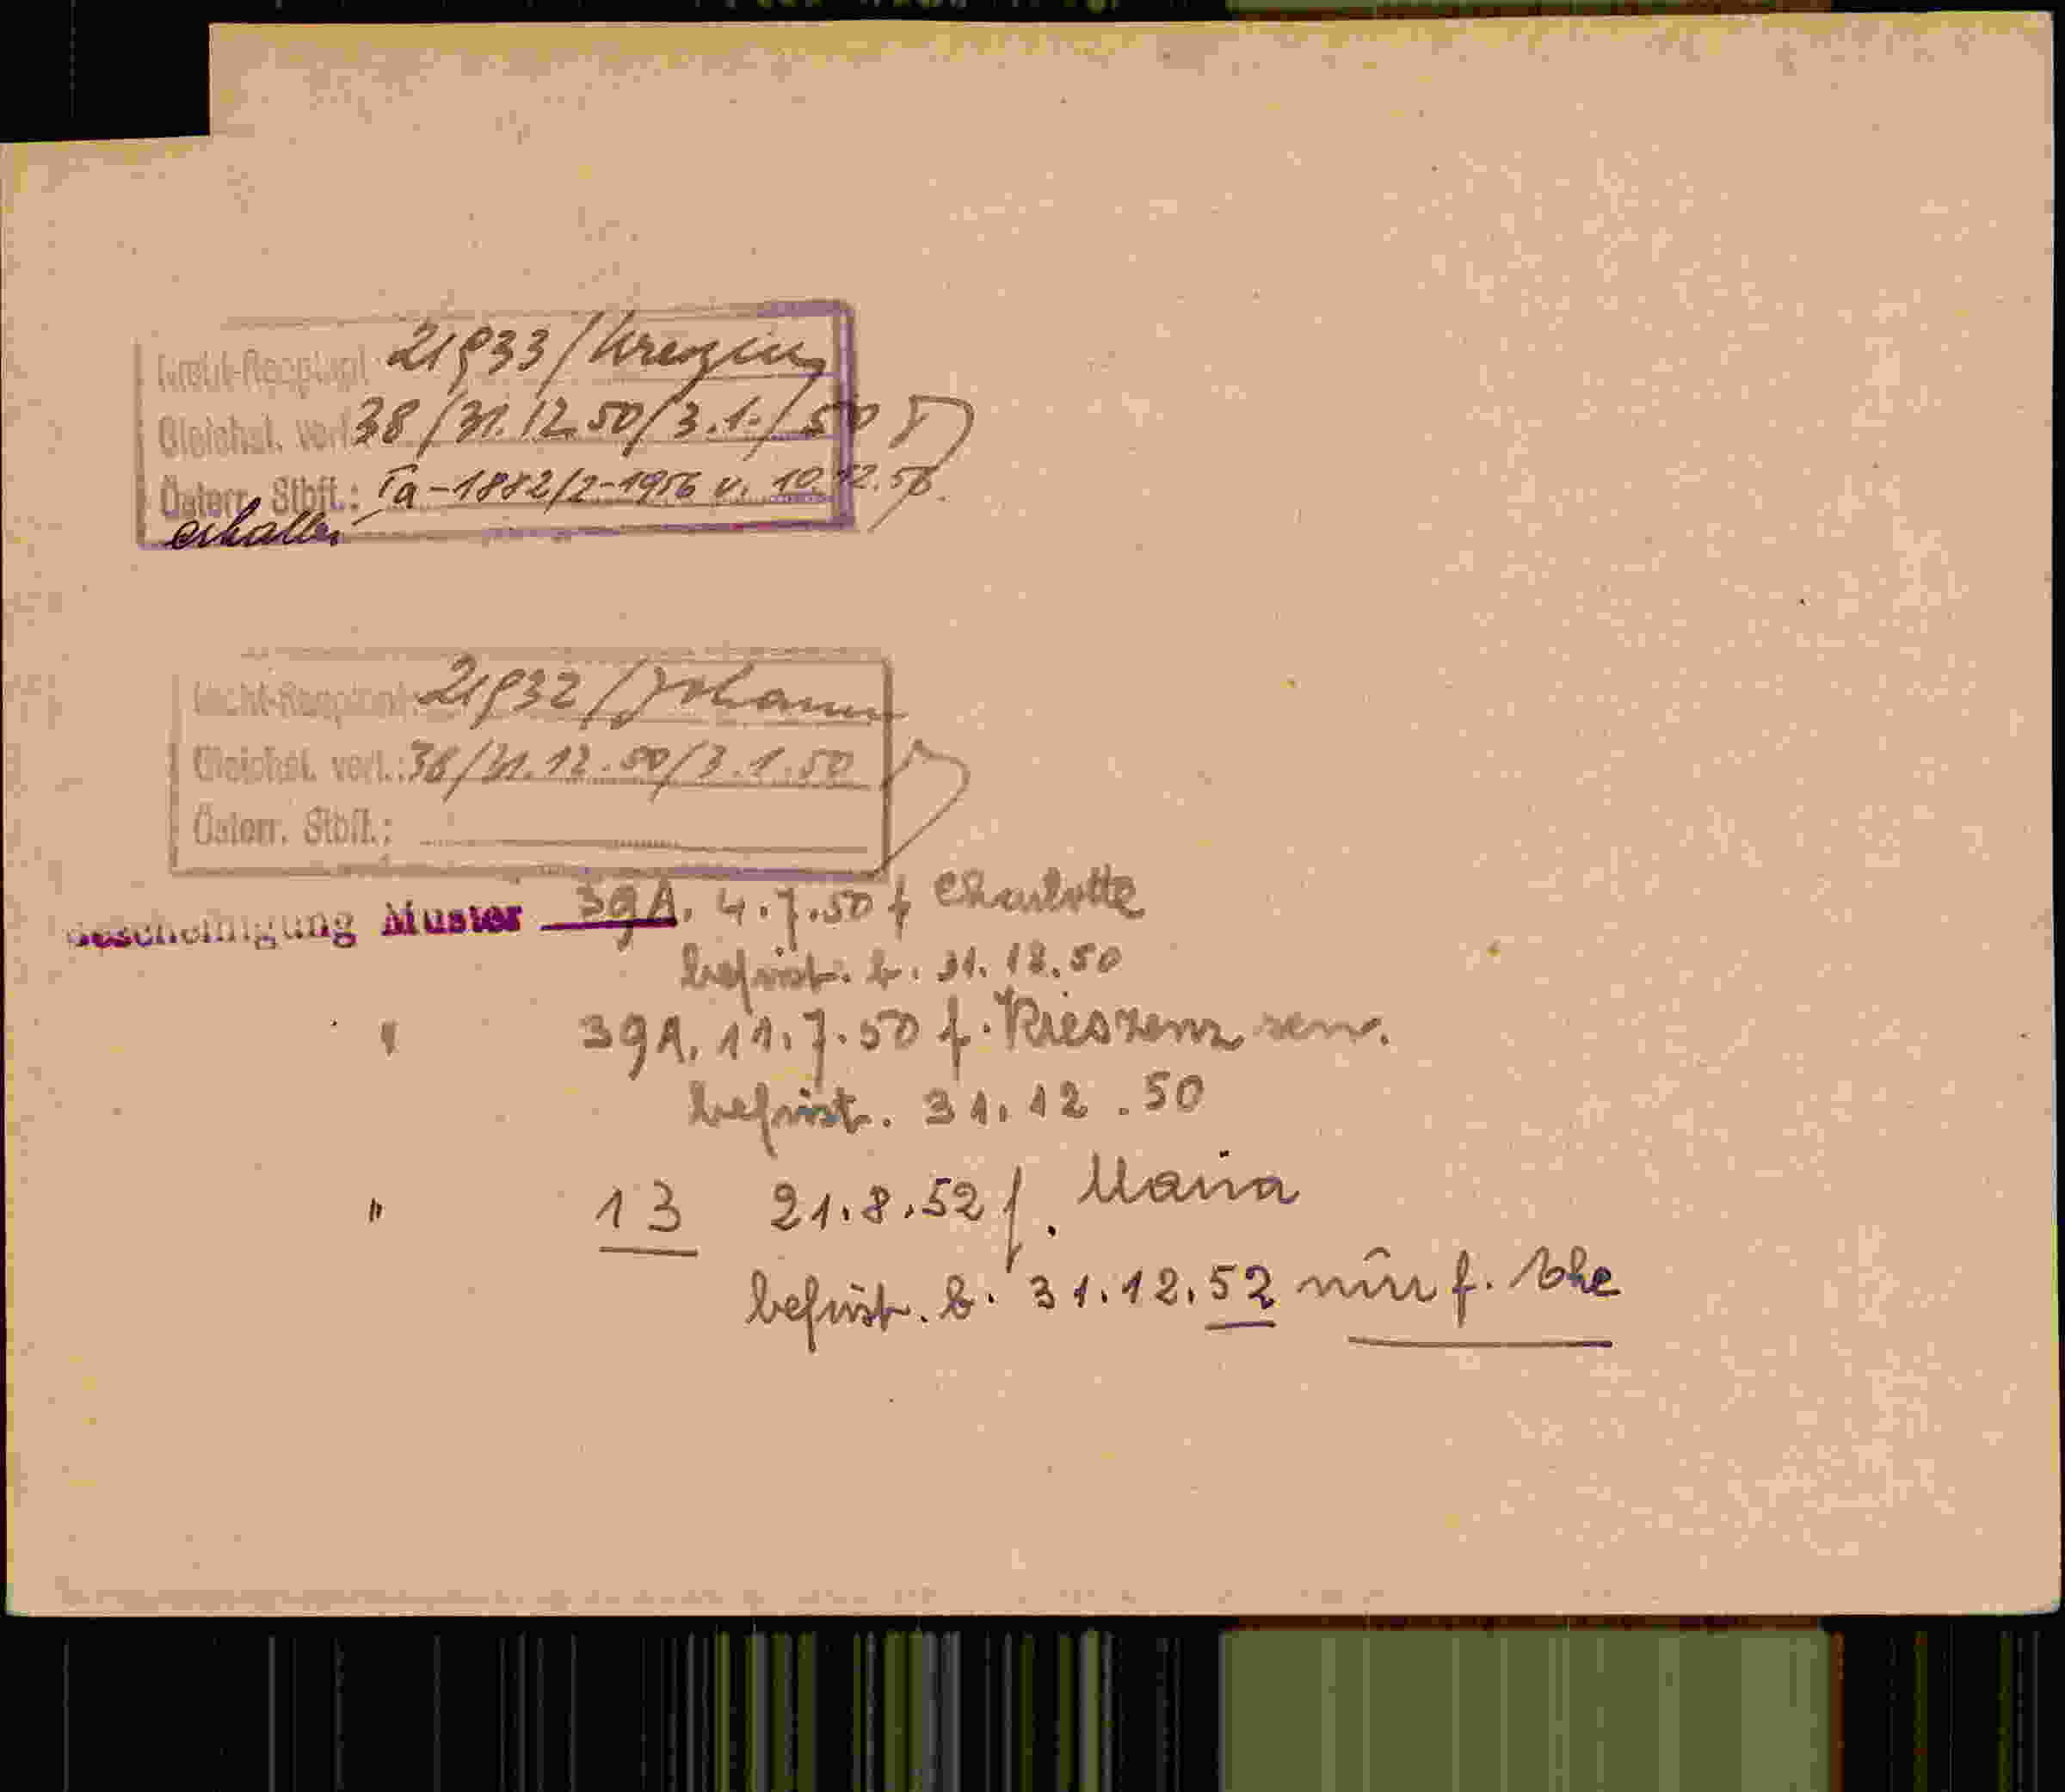 21933/
Gleichst. verl. 38/31.12.50/3.1./50
Österr. Stbft.: Ia-1882/2-1956 v. 10.12.56.
erhalten
21932/Johann
Gleichst. verl.: 38/31.12.50/3.1.50
Österr. Stbft.:
Bescheinigung Muster 39A. 4.7.50 f Charlotte
befrist. b. 31.12.50
" 39A. 11.7.50 f. sen.
befrist. 31.12.50
" 13 21.8.52 f. Maria
befrist. b. 31.12.52 nur f. Ehe